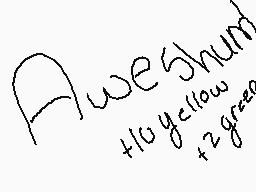 Aweshum
+10 yellow
+2 green